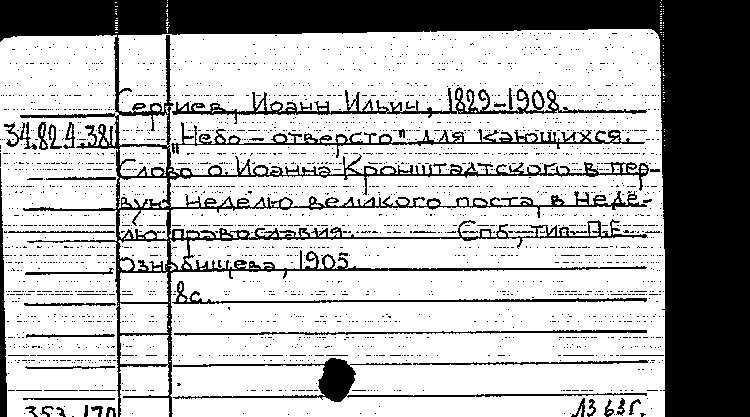 Сергиев, Иоанн Ильич, 1829-1908.
34.82.4.381
„Небо - отверсто" для кающихся.
Слово о. Иоанна Кронштадтского в пер-
вую неделю великого поста, в неде-
лю православия. Спб, тип. П.Е.
Ознобищева, 1905.
8с.
353-170